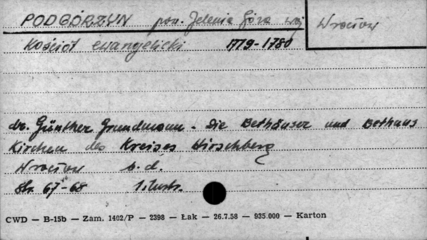 PODGÓRZYN pow. Jelenia Góra woj Wrocław
Kościół ewangelicki 1779-1780
dr. Günther Grundmann - Die Bethäuser und Bethaus
Kirchen des Kreises Hirschberg
Wrocław b.d.
Str. 67-68 ilustr.
CWD — B-15b — Zam. 1402/P — 2398 — Łak — 26.7.58 — 935.000 — Karton